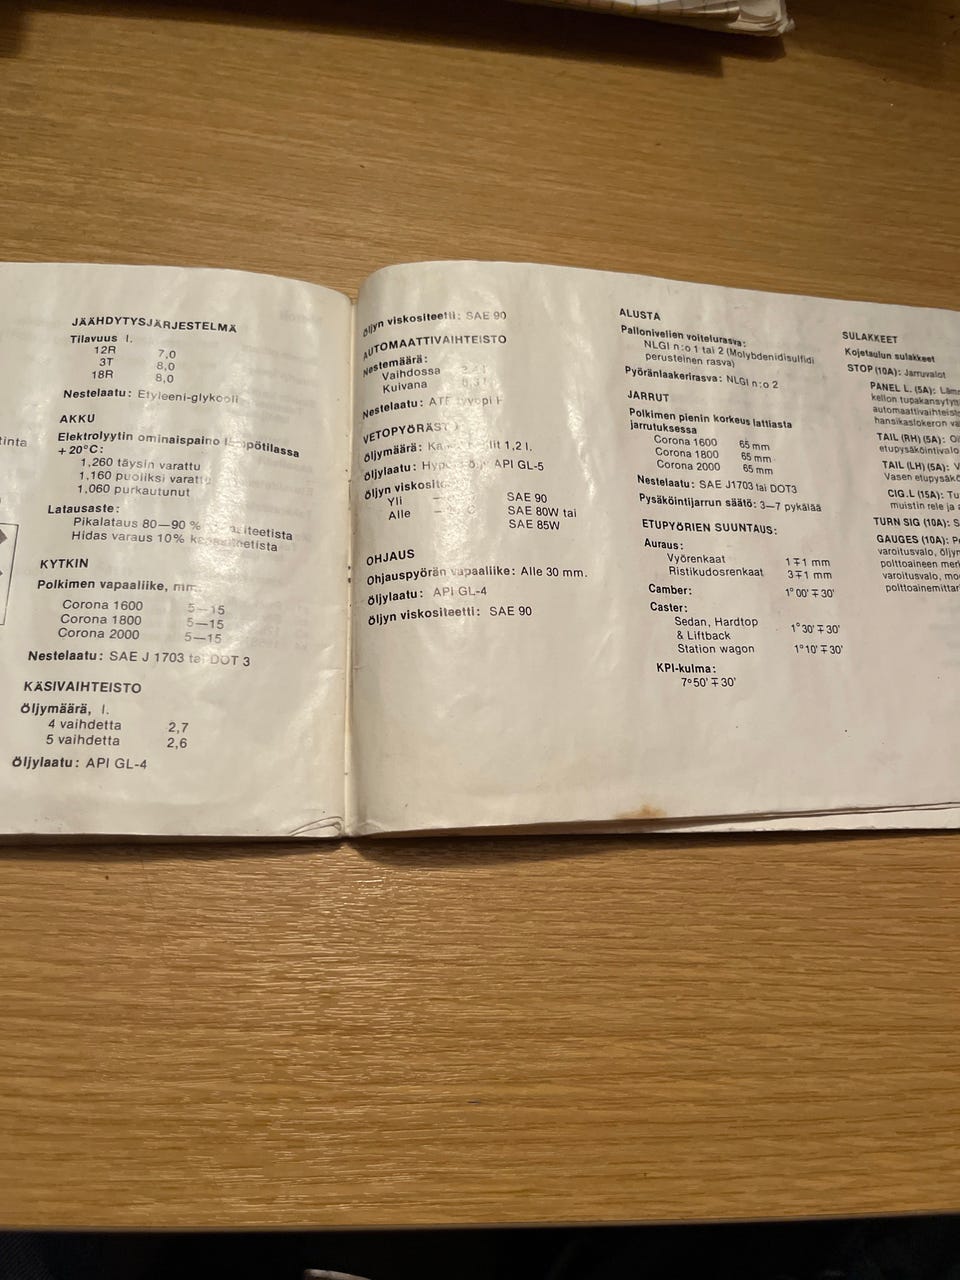 JÄÄHDYTYSJÄRJESTELMÄ
Tilavuus l.
12R 7,0
3T 8,0
18R 8,0
Nestelaatu: Etyleeni-glykooli
AKKU
Elektrolyytin ominaispaino
+20°C:
1,260 täysin varattu
1,160 puoliksi varattu
1,060 purkautunut
Latausaste:
Pikalataus 80—90 %
Hidas varaus 10%
KYTKIN
Polkimen vapaaliike, mm.
Corona 1600 5—15
Corona 1800 5—15
Corona 2000 5—15
Nestelaatu: SAE J 1703 tai DOT 3
KÄSIVAIHTEISTO
Öljymäärä, l.
4 vaihdetta 2,7
5 vaihdetta 2,6
Öljylaatu: API GL-4
Öljyn viskositeetti: SAE 90
AUTOMAATTIVAIHTEISTO
Nestemäärä:
Vaihdossa
Kuivana
Nestelaatu: ATF tyyppi F
VETOPYÖRÄSTÖ
Öljymäärä: 1,2 l.
Öljylaatu: API GL-5
Öljyn viskositeetti
Yli SAE 90
Alle SAE 80W tai
SAE 85W
OHJAUS
Ohjauspyörän vapaaliike: Alle 30 mm.
Öljylaatu: API GL-4
Öljyn viskositeetti: SAE 90
ALUSTA
Pallonivelien voitelurasva:
NLGI n:o 1 tai 2 (Molybdenidisulfidi
perusteinen rasva)
Pyöränlaakerirasva: NLGI n:o 2
JARRUT
Polkimen pienin korkeus lattiasta
jarrutuksessa
Corona 1600 65 mm
Corona 1800 65 mm
Corona 2000 65 mm
Nestelaatu: SAE J1703 tai DOT3
Pysäköintijarrun säätö: 3—7 pykälää
ETUPYÖRIEN SUUNTAUS:
Auraus:
Vyörenkaat 1∓1 mm
Ristikudosrenkaat 3∓1 mm
Camber: 1°00'∓30'
Caster:
Sedan, Hardtop
& Liftback 1°30'∓30'
Station wagon 1°10'∓30'
KPI-kulma:
7°50'∓30'
SULAKKEET
Kojetaulun sulakkeet
STOP (10A): Jarruvalot
PANEL L. (5A):
kellon
automaattivaihteisto
hansikaslokeron
TAIL (RH) (5A):
etupysäköintivalo
TAIL (LH) (5A):
Vasen
CIG.L (15A):
muistin rele ja
TURN SIG (10A):
GAUGES (10A):
varoitusvalo,
polttoaineen
varoitusvalo,
polttoainemittari